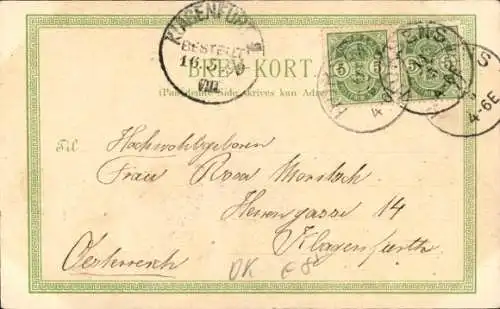 KLAGENFURT
BESTELLT
16.5
VIII
BREV-KORT.
(Paa denne Side skrives kun Adressen)
5 5 5 5
4-6E 4-6E
Til Hochwohlgeboren
Frau Rosa
Herrengasse 14
Klagenfurth
Oesterreich
DK €8